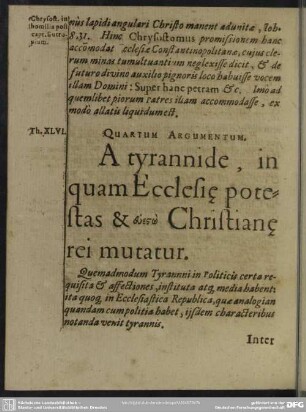 nus lapidi angulari Christo manent adunitæ, Ioh.
8,31. Hinc Chrysostomus promissionem hanc
accomodat ecclesiæ Constantinopolitanæ, cujus cle-
rum minas tumultuantium neglexisse dicit, & de
futuro divino auxilio pignoris loco habuisse vocem
illam Domini: Super hanc petram &c. Imo ad
quemlibet piorum Patres illam accommodasse, ex
modò allatis liquidum est.
Chrysost. in
homilia post
capt. Eutro-
pium.
Th. XLVI.
QUARTUM ARGUMENTUM.
A tyrannide, in
quam Ecclesię pote-
stas & Christianę
rei mutatur.
Quemadmodum Tyranni in Politicis certa re-
quisita & affectiones, instituta atq; media habent:
ita quoq; in Ecclesiastica Republica, quæ analogian
quandam cum politia habet, ijsdem characteribus
notanda venit tyrannis.
Inter